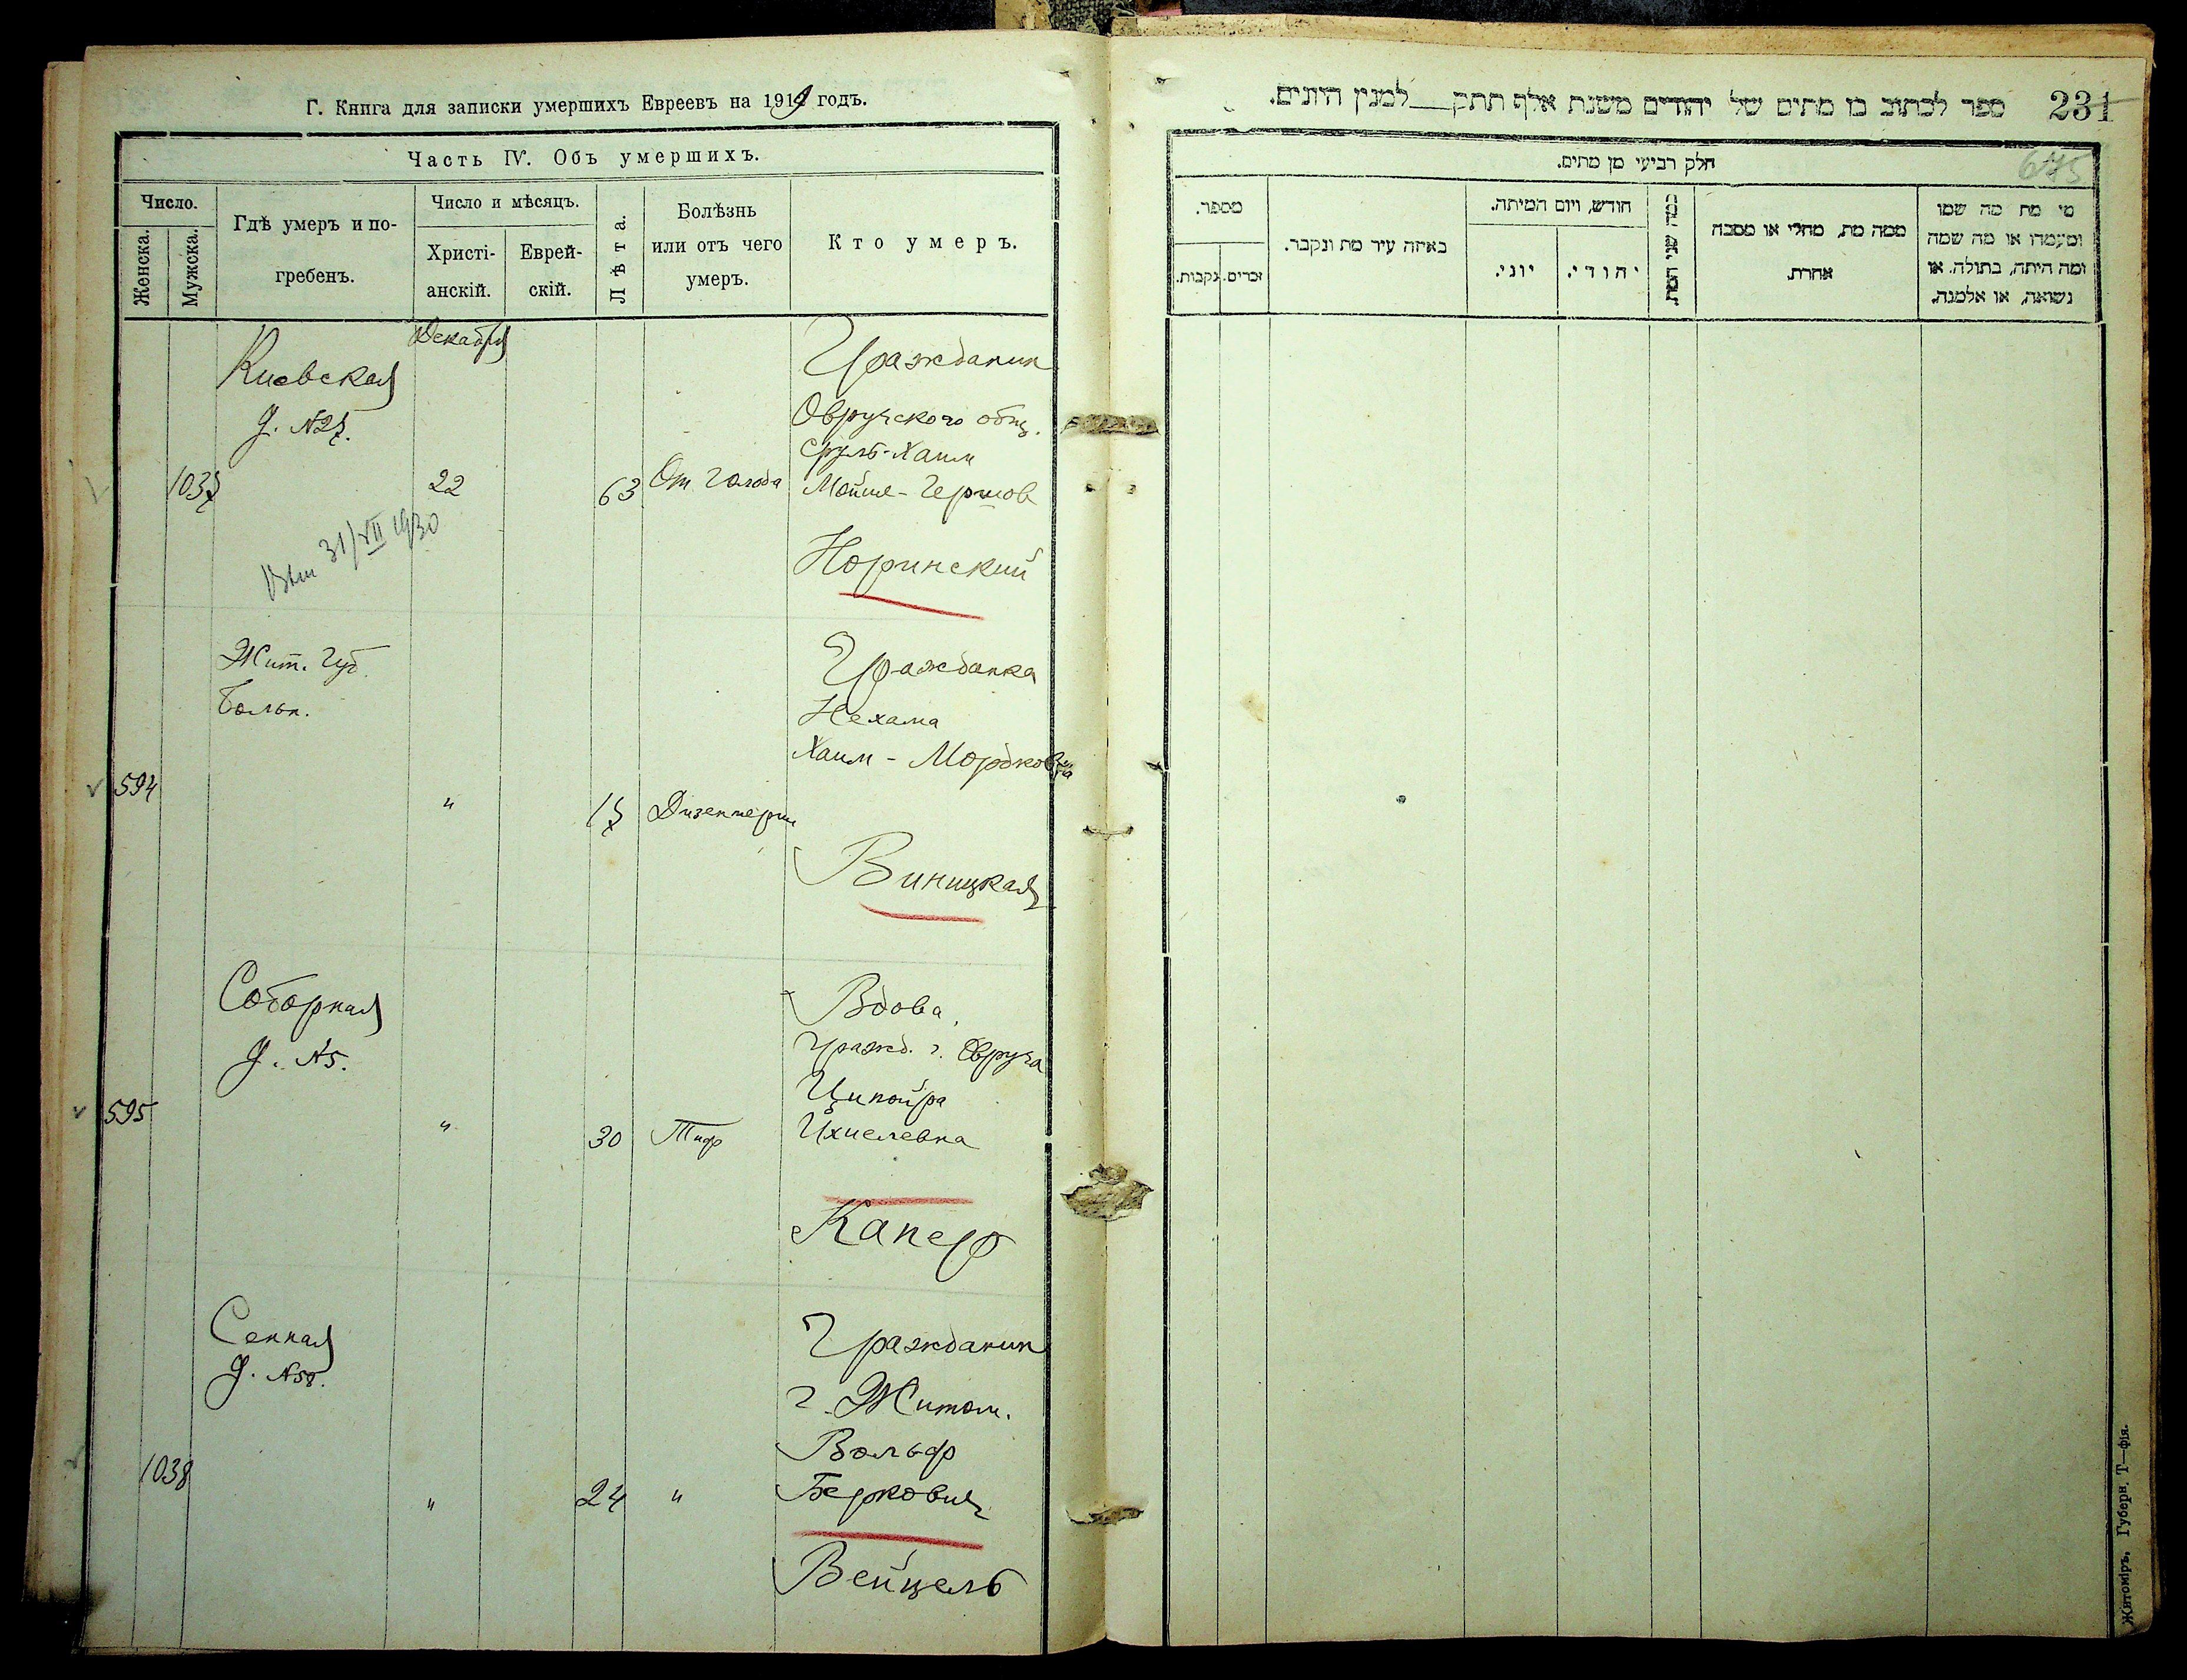 Г. Книга для записки умершихъ Евреевъ на 1919 годъ.
Часть IV. Объ умершихъ.
Число.
Женска.
Мужска.
Гдѣ умеръ и по-
гребенъ.
Число и мѣсяцъ.
Христі-
анскій.
Еврей-
скій.
Лѣта.
Болѣзнь
или отъ чего
умеръ.
Кто умеръ.
Декабря
Киевская
д. №27.
1037
22
63
От голода
Гражданин
Овручского общ.
Сруль-Хаим
Мойше-Гершов
Норинский
31/VII 1930
Жит. Губ.
Больн.
594
"
17
Дизентерии
Гражданка
Нехама
Хаим-Мордковна
Виницкая
Соборная
д. №5.
595
"
30
Тиф
Вдова,
Гражд. г. Овруча
Ципойра
Ихиелевна
Капер
Сенная
д. №58.
1038
"
24
"
Гражданин
г. Житом.
Вольф
Беркович
Вейцель
ספר לכתוב בו מתים של יהודים משנת אלף תתק__למנין היונים.
231
675
חלק רביעי מן מתים.
מספר.
נקבות.
זכרים.
באיזה עיר מת ונקבר.
חודש, ויום המיתה.
יוני.
יהודי.
כמה שני המת.
ממה מת, מחלי או מסבה
אחרת.
מי מת מה שמו
ומעמדו או מה שמה
ומה היתה, בתולה. או
נשואה, או אלמנה.
Житоміръ, Губерн. Т—фія.